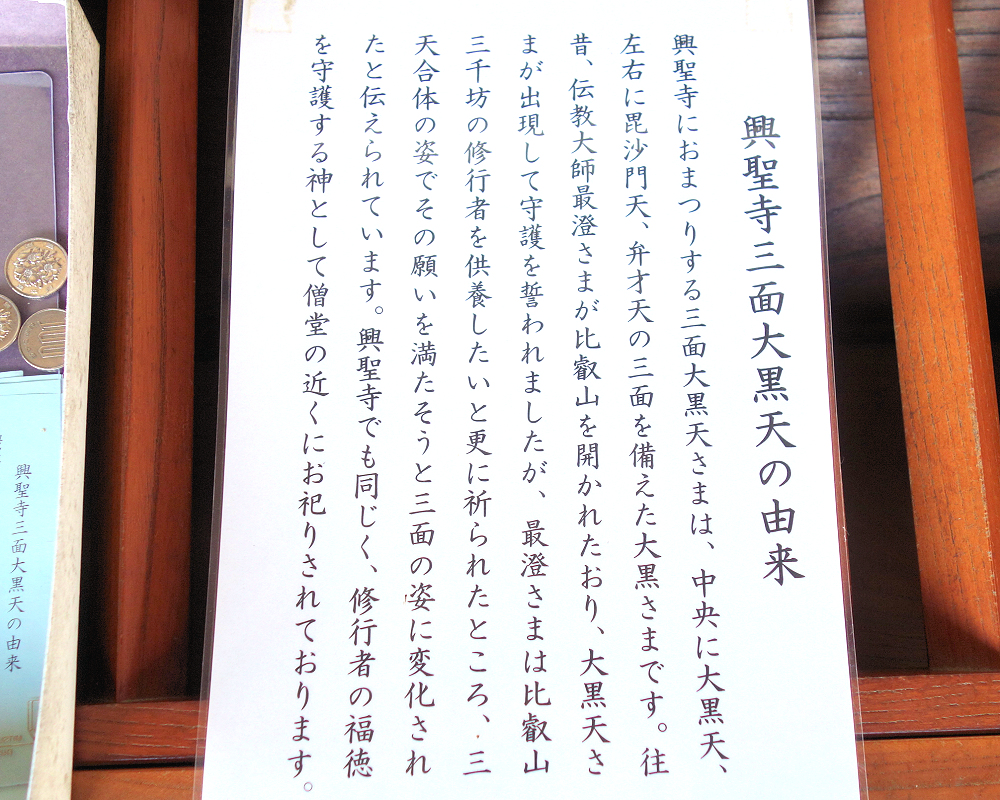 興聖寺三面大黒天の由来
興聖寺におまつりする三面大黒天さまは、中央に大黒天、
左右に毘沙門天、弁才天の三面を備えた大黒さまです。往
昔、伝教大師最澄さまが比叡山を開かれたおり、大黒天さ
まが出現して守護を誓われましたが、最澄さまは比叡山
三千坊の修行者を供養したいと更に祈られたところ、三
天合体の姿でその願いを満たそうと三面の姿に変化され
たと伝えられています。興聖寺でも同じく、修行者の福徳
を守護する神として僧堂の近くにお祀りされております。
興聖寺三面大黒天の由来